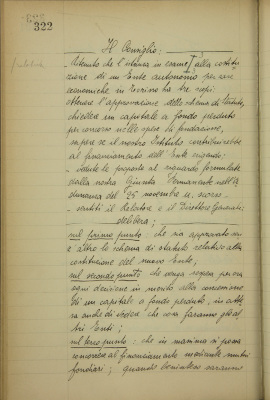 322
Il Consiglio:
- ritenuto che l'istanza in esame, alla costitu-
zione di un Ente autonomo per case
economiche in Torino ha tre scopi:
ottenere l'approvazione dello schema di Statuto,
chiedere un capitale a fondo perduto
per concorso nelle spese di fondazione,
sapere se il nostro Istituto contribuirebbe
al finanziamento dell'Ente erigendo;
- vedute le proposte al riguardo formulate
dalla nostra Giunta Permanente nell'a-
dunanza del 25 novembre u. scorso
- sentiti il Relatore e il Direttore Generale;
delibera:
sul primo punto: che sia approvato ove
e altro lo schema di statuto relativo alla
costituzione del nuovo Ente,
sul secondo punto che venga sospesa per ora
ogni decisione in merito alla concessione
di un capitale a fondo perduto, in atte-
sa anche di vedere che cosa faranno gli al-
tri Enti;
sul terzo punto: che in massima si possa
concorrere al finanziamento mediante mutui
fondiari; quando beninteso saranno